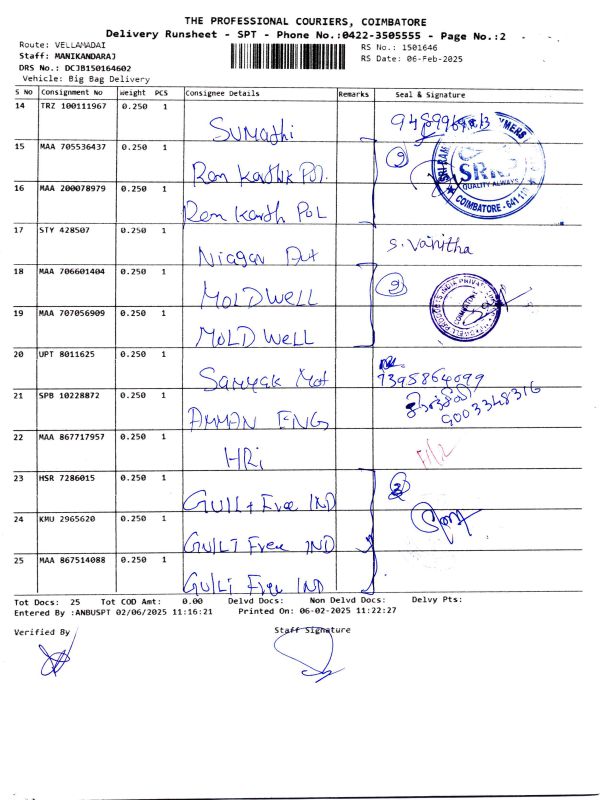 THE PROFESSIONAL COURIERS, COIMBATORE
Delivery Runsheet - SPT - Phone No.:0422-3505555 - Page No.:2
Route: VELLAMADAI
RS No.: 1501646
Staff: MANIKANDARAJ
RS Date: 06-Feb-2025
DRS No.: DCJB150164602
Vehicle: Big Bag Delivery
S No Consignment No Weight PCS Consignee Details Remarks Seal & Signature
14 TRZ 100111967 0.250 1 Sumathi
15 MAA 705536437 0.250 1 Ram Karthik Pol.
2
SRKP
QUALITY ALWAYS
COIMBATORE - 641 110
16 MAA 200078979 0.250 1 Ram Karth POL
17 STY 428507 0.250 1 Niagan S. Vanitha
18 MAA 706601404 0.250 1 MOLDWELL 2
19 MAA 707056909 0.250 1 MOLD WELL
20 UPT 8011625 0.250 1 Sanyak Mot 7395864099
21 SPB 10228872 0.250 1 AMMAN ENG 9003348316
22 MAA 867717957 0.250 1 HRi
23 HSR 7286015 0.250 1 GUILt Free IND 3
24 KMU 2965620 0.250 1 GUILT Free IND
25 MAA 867514088 0.250 1 GUILT Free IND
Tot Docs: 25 Tot COD Amt: 0.00 Delvd Docs: Non Delvd Docs: Delvy Pts:
Entered By :ANBUSPT 02/06/2025 11:16:21 Printed On: 06-02-2025 11:22:27
Verified By Staff Signature